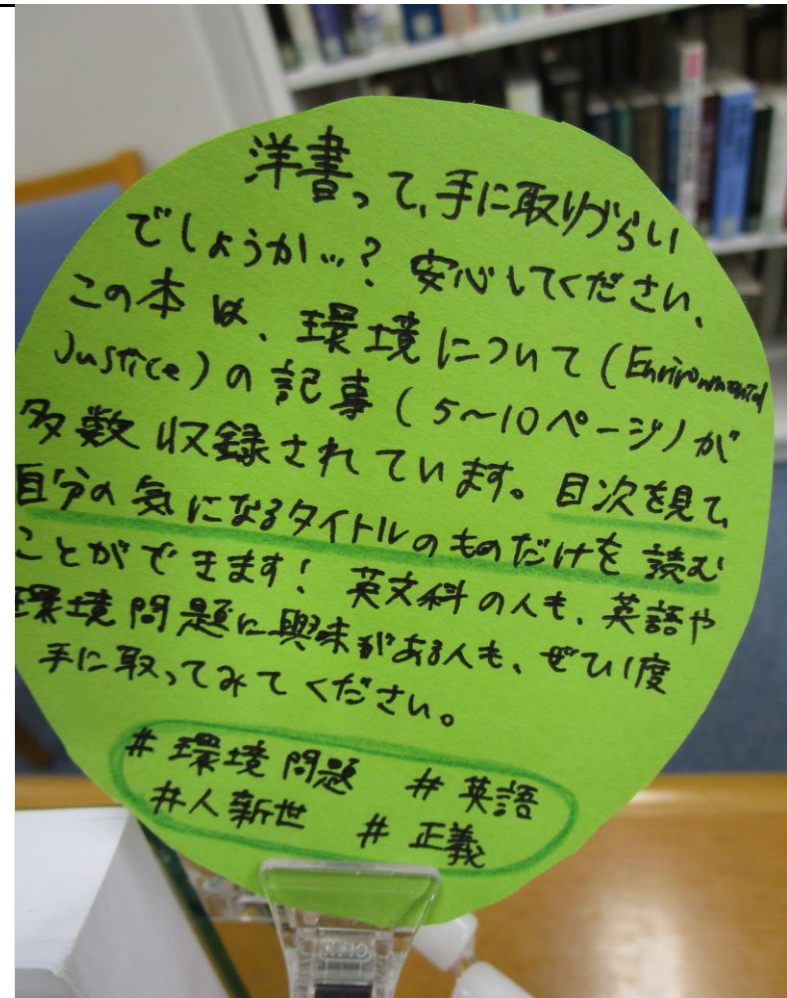 洋書って、手に取りづらい
でしょうか…？ 安心してください、
この本は、環境について (Environmental
Justice) の記事 (5〜10ページ) が
多数収録されています。目次を見て、
自分の気になるタイトルのものだけを読む
ことができます！ 英文科の人も、英語や
環境問題に興味がある人も、ぜひ1度
手に取ってみてください。
#環境問題 #英語
#人新世 #正義